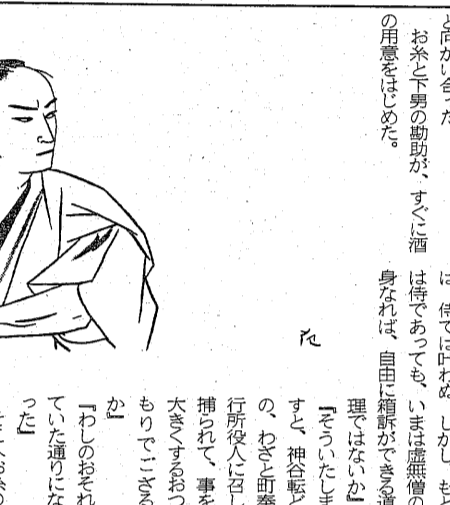 と向かい合った
お糸と下男の勘助が、すぐに酒
の用意をはじめた。
は、侍では叶わぬ。しかし、もと
は侍であっても、いまは虚無僧の
身なれば、自由に箱訴ができる道
理ではないか』
『そういたしま
すと、神谷転ど
の、わざと町奉
行所役人に召し
捕られて、事を
大きくするおつ
もりでござる
か』
『わしのおそれ
ていた通りにな
った』